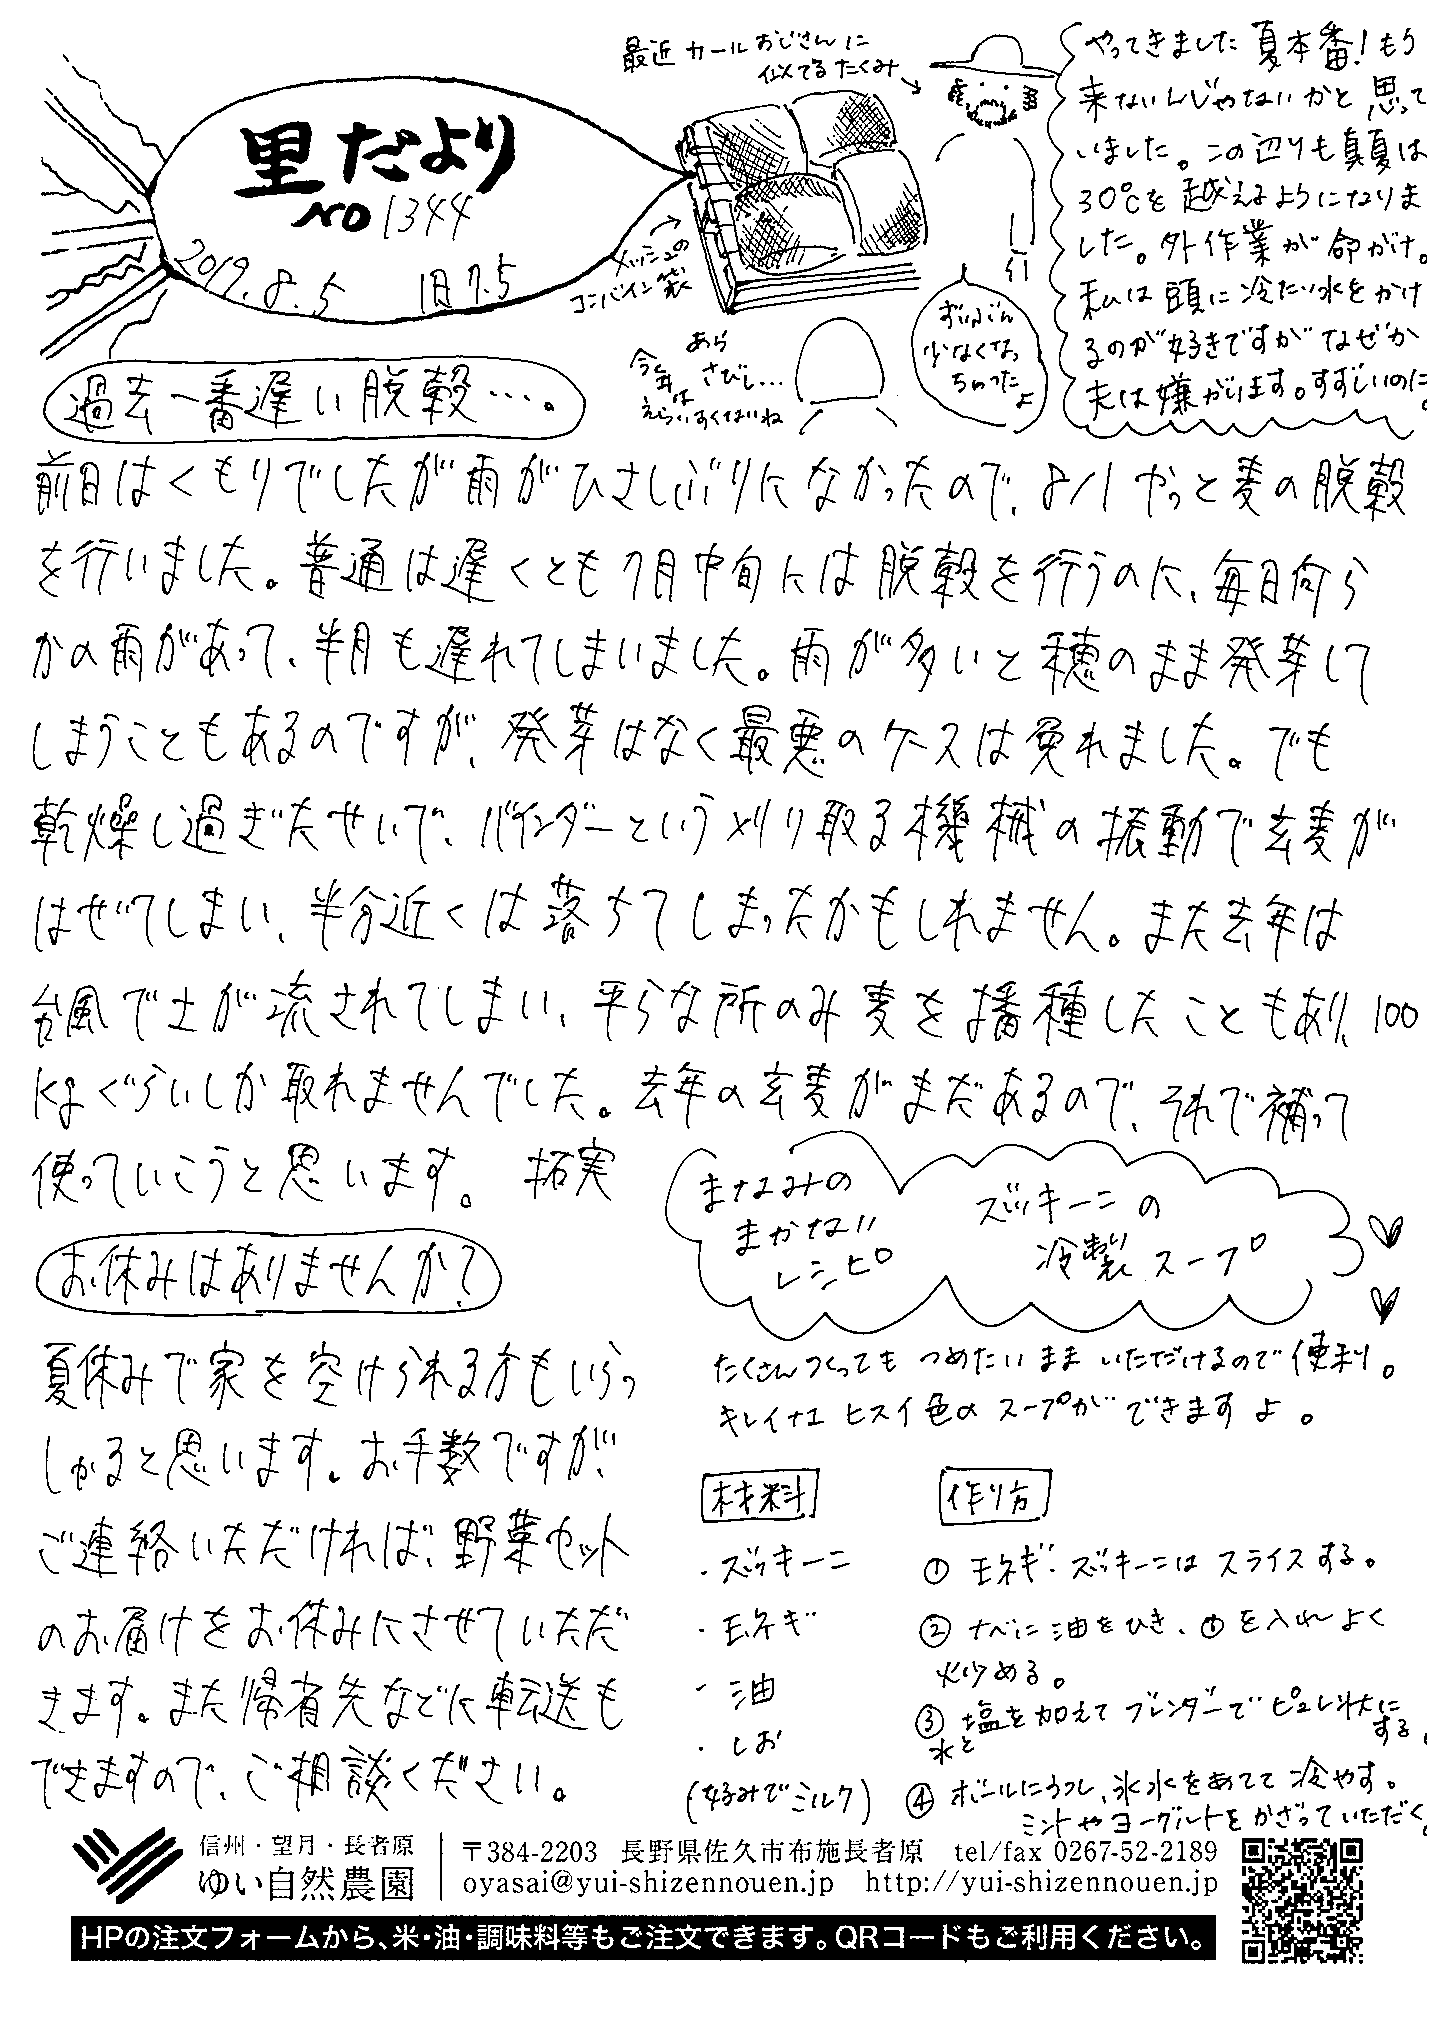 里だより
NO 1344
2019.8.5 旧7.5
最近 カールおじさんに
似てるたくみ
メッシュの
コンバイン袋
あら
さびし…
今年は
えらいすくないね
ずいぶん
少なくなっ
ちゃったよ
やってきました 夏本番!もう
来ないんじゃないかと思って
いました。この辺りも真夏は
30℃を越えるようになりま
した。外作業が命がけ。
私は頭に冷たい水をかけ
るのが好きですがなぜか
夫は嫌がります。すずしいのに。
過去一番遅い脱穀…。
前日はくもりでしたが雨がひさしぶりになかったので、8/1 やっと麦の脱穀
を行いました。普通は遅くとも7月中旬には脱穀を行うのに、毎日何ら
かの雨があって、半月も遅れてしまいました。雨が多いと穂のまま発芽して
しまうこともあるのですが、発芽はなく最悪のケースは免れました。でも
乾燥し過ぎたせいで、バインダーという刈り取る機械の振動で玄麦が
はぜてしまい、半分近くは落ちてしまったかもしれません。また去年は
台風で土が流されてしまい、平らな所のみ麦を播種したこともあり、100
kgぐらいしか取れませんでした。去年の玄麦がまだあるので、それで補って
使っていこうと思います。 拓実
お休みはありませんか?
夏休みで家を空けられる方もいらっ
しゃると思います。お手数ですが、
ご連絡いただければ、野菜セット
のお届けをお休みにさせていただ
きます。また帰省先などに転送も
できますので、ご相談ください。
まなみの
まかない
レシピ
ズッキーニの
冷製スープ
たくさんつくっても つめたいまま いただけるので便利。
キレイナエ ヒスイ色の スープが できますよ。
材料
・ズッキーニ
・玉ネギ
・油
・しお
(好みでミルク)
作り方
① 玉ネギ・ズッキーニは スライスする。
② ナベに油をひき、①を入れ よく
炒める。
③ 塩を加えて ブレンダーで ピュレ状に
水と
する。
④ ボールにうつし、氷水をあてて 冷やす。
ミントやヨーグルトを かざっていただく。
信州・望月・長者原
ゆい自然農園
〒384-2203 長野県佐久市布施長者原 tel/fax 0267-52-2189
oyasai@yui-shizennouen.jp http://yui-shizennouen.jp
HPの注文フォームから、米・油・調味料等もご注文できます。QRコードもご利用ください。